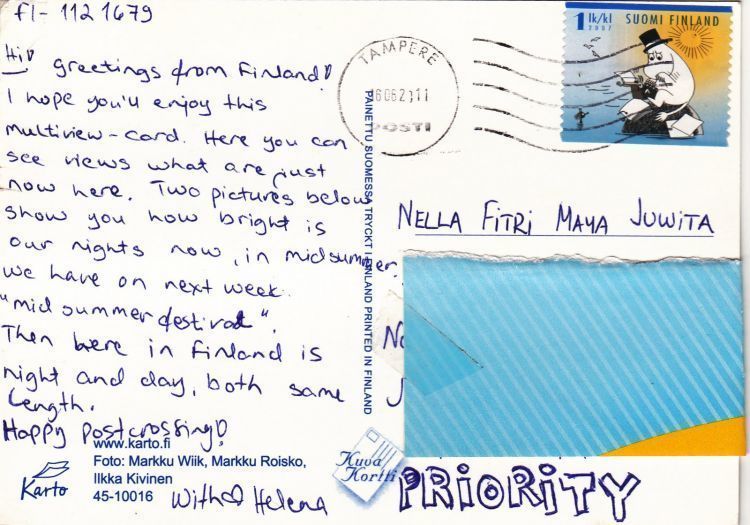 FI-1121679
Hi! greetings from Finland!
I hope you'll enjoy this
multiview-card. Here you can
see views what are just
now here. Two pictures below
show you how bright is
our nights now, in midsummer.
we have on next week
"mid summer festival".
Then here in Finland is
night and day, both same
length.
Happy postcrossing!
www.karto.fi
Foto: Markku Wiik, Markku Roisko,
Ilkka Kivinen
45-10016
Karto
With Helena
PAINETTU SUOMESSA TRYCKT I FINLAND PRINTED IN FINLAND
Kuva
Kortti
TAMPERE
POSTI
1 lk/kl
2007
SUOMI FINLAND
NELLA FITRI MAYA JUWITA
PRIORITY